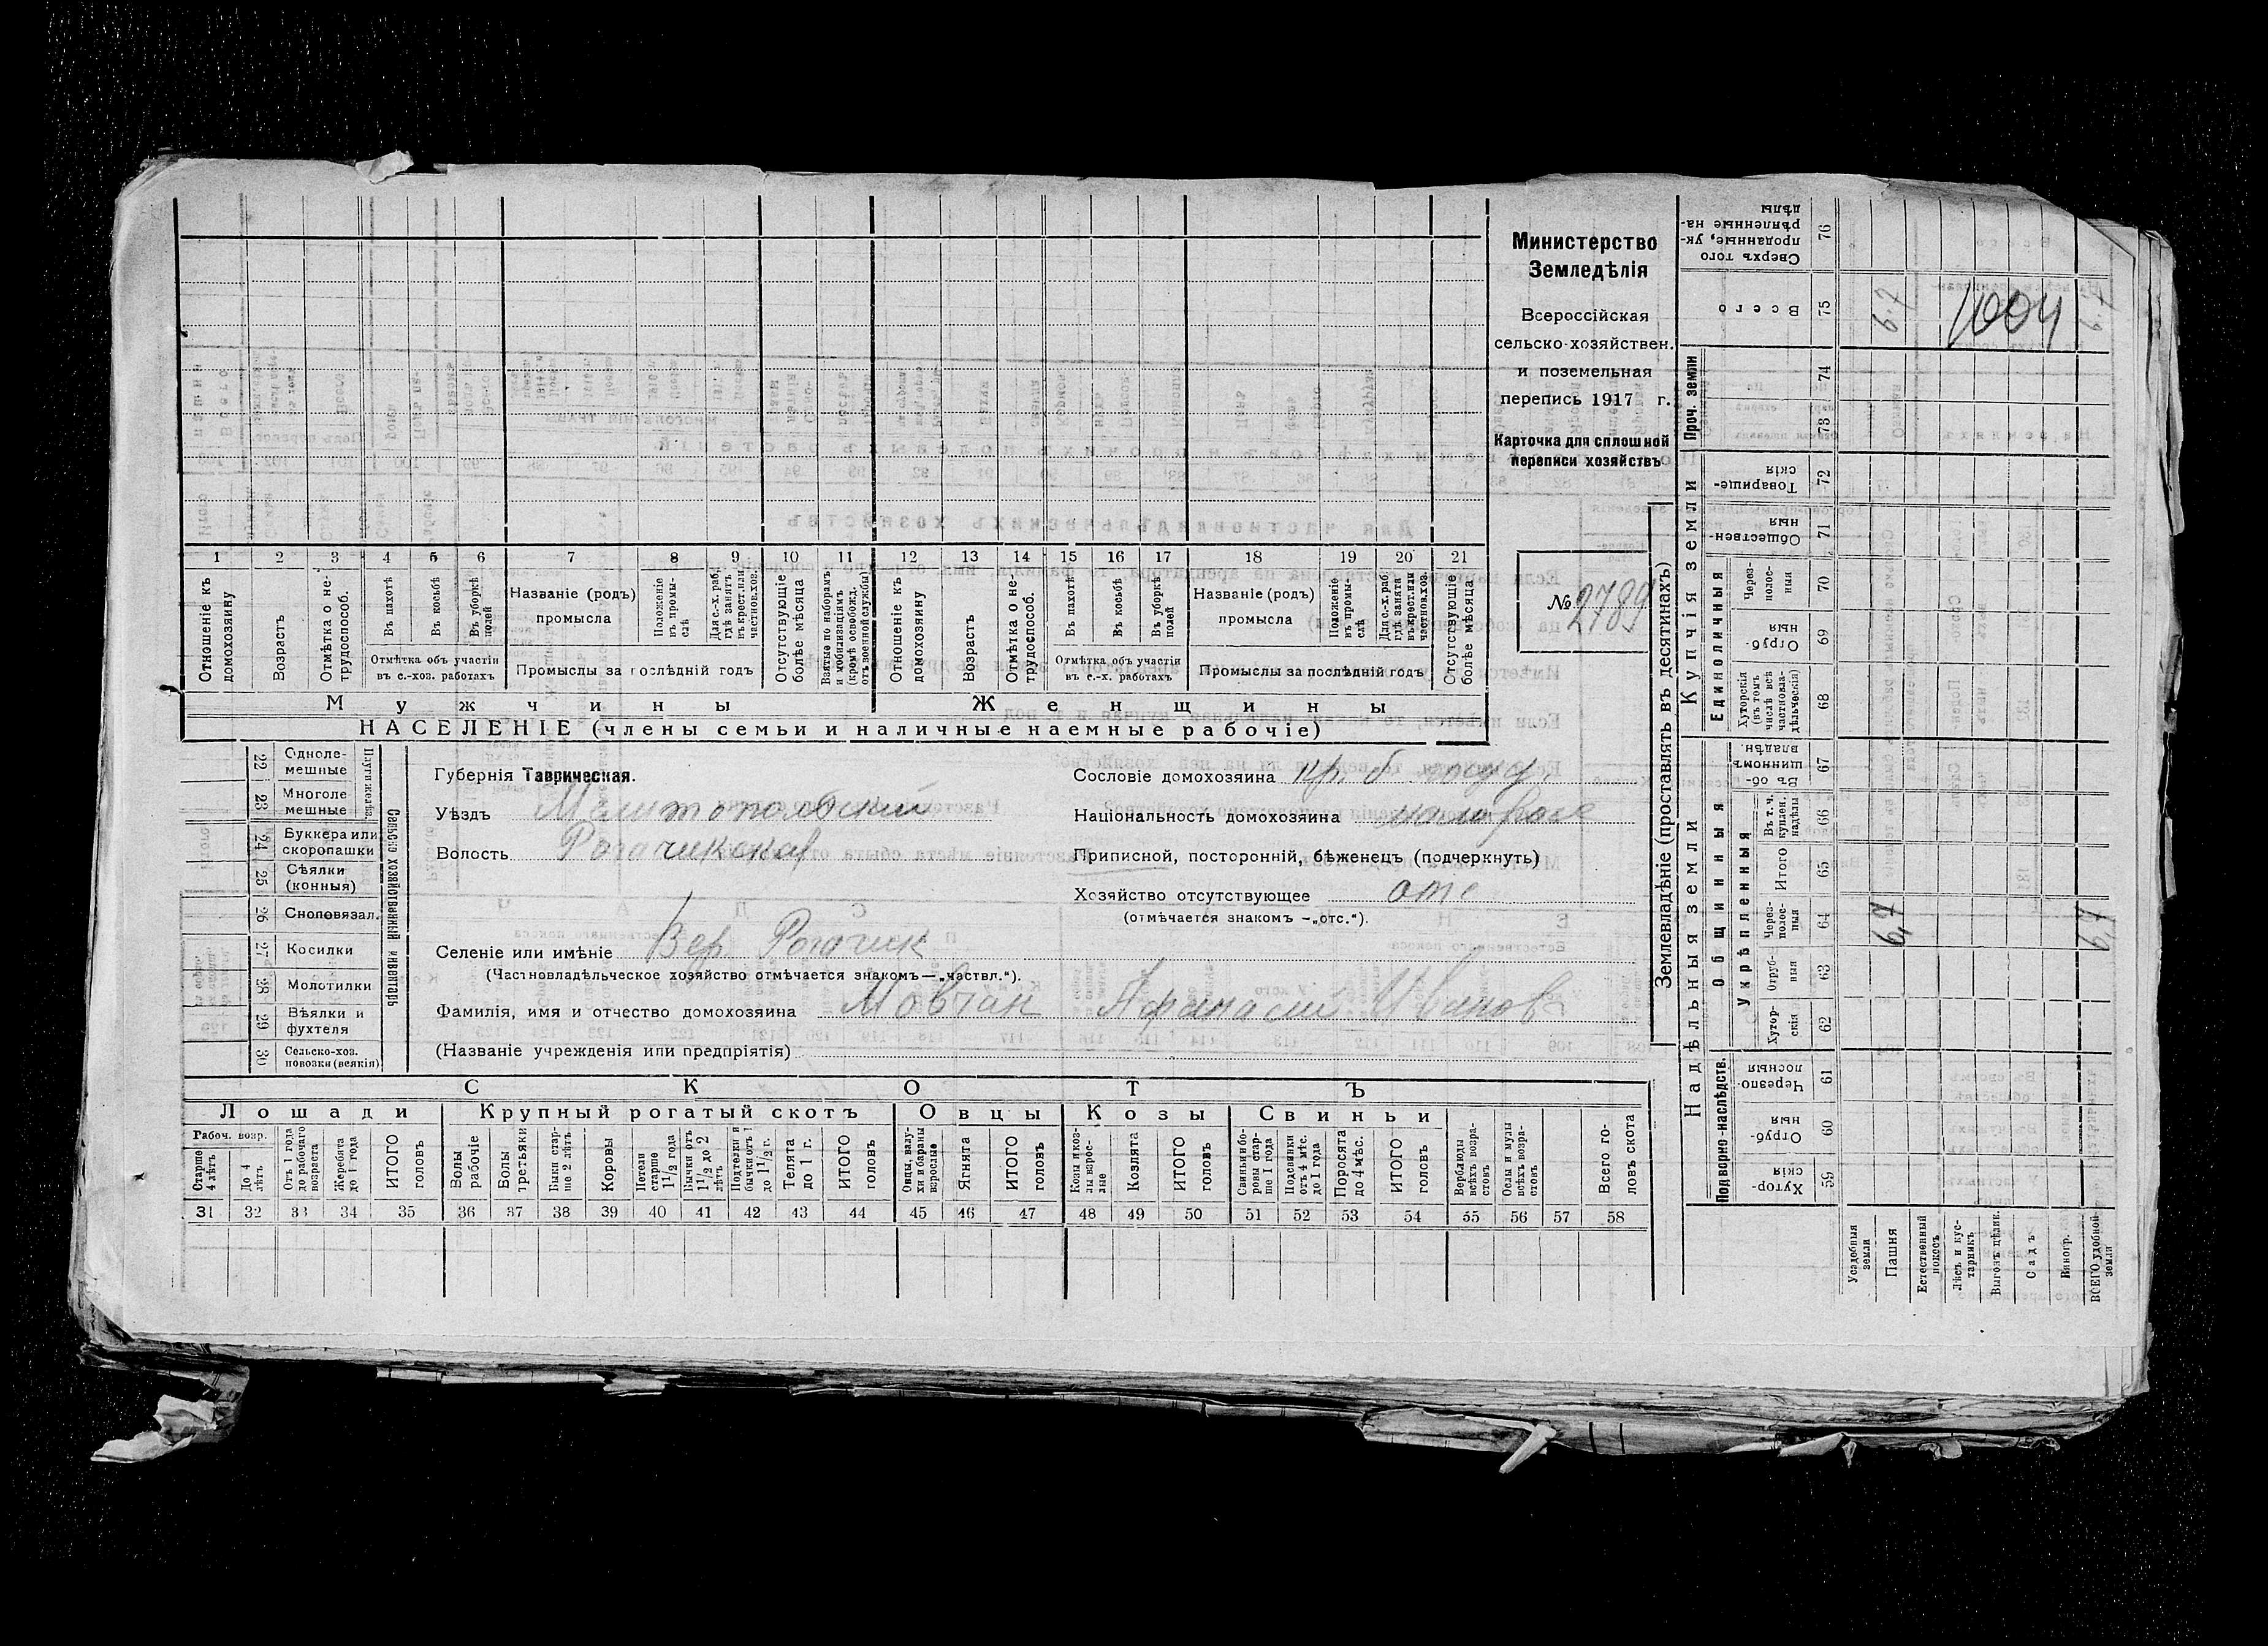 Министерство
Земледѣлія
Всероссійская
сельско-хозяйствен.
и поземельная
перепись 1917 г.
Карточка для сплошной
переписи хозяйствъ
№ 2789
1 2 3 4 5 6 7 8 9 10 11 12 13 14 15 16 17 18 19 20 21
Отношеніе къ домохозяину
Возрастъ
Отмѣтка о не-трудоспособ.
Въ пахотѣ
Въ косьбѣ
Въ уборкѣ полей
Отмѣтка объ участіи въ с.-хоз. работахъ
Названіе (родъ) промысла
Положеніе въ промы-слѣ
Для с.-х. раб. гдѣ занятъ въ крест. или частнов. хоз.
Промыслы за послѣдній годъ
Отсутствующіе болѣе мѣсяца
Взятые по наборамъ и мобилизаціямъ (кромѣ освобожд. отъ военной службы)
Отношеніе къ домохозяину
Возрастъ
Отмѣтка о не-трудоспособ.
Въ пахотѣ
Въ косьбѣ
Въ уборкѣ полей
Отмѣтка объ участіи въ с.-х. работахъ
Названіе (родъ) промысла
Положеніе въ промы-слѣ
Для с.-х. раб. гдѣ занята въ крест. или частнов. хоз.
Промыслы за послѣдній годъ
Отсутствующіе болѣе мѣсяца
Мужчины Женщины
НАСЕЛЕНІЕ (члены семьи и наличные наемные рабочіе)
22 Одноле-мешные
23 Многоле мешные
24 Буккера или скоропашки
25 Сѣялки (конныя)
26 Сноповязал.
27 Косилки
28 Молотилки
29 Вѣялки и фухтеля
30 Сельско-хоз. повозки (всякія)
Сельско хозяйственный инвентарь
Губернія Таврическая.
Уѣздъ Мелитопольский
Волость Рогачикская
Селеніе или имѣніе Вер. Рогачик
(Частновладѣльческое хозяйство отмѣчается знакомъ—„частвл.“).
Фамилія, имя и отчество домохозяина Мовчан Афанасий Иванов
(Названіе учрежденія или предпріятія)
Сословіе домохозяина кр. б.
Національность домохозяина малорос
Приписной, посторонній, бѣженецъ (подчеркнуть)
Хозяйство отсутствующее отс
(отмѣчается знакомъ —„отс.“).
СКОТЪ
Лошади Крупный рогатый скотъ Овцы Козы Свиньи
Рабоч. возр.
Старше 4 лѣтъ
До 4 лѣтъ
Отъ 1 года до рабочаго возраста
Жеребята до 1 года
ИТОГО головъ
Волы рабочіе
Волы третьяки
Быки стар-ше 2 лѣтъ
Коровы
Нетели старше 1 1/2 года
Бычки отъ 1 1/2 до 2 лѣтъ
Подтелки и бычки отъ 1 до 1 1/2 г.
Телята до 1 г.
ИТОГО головъ
Овцы, валу-хи и бараны взрослые
Ягнята
ИТОГО головъ
Козы и коз-лы взрос-лые
Козлята
ИТОГО головъ
Свиньи и бо-ровы стар-ше 1 года
Подсвинки отъ 4 мѣс. до 1 года
Поросята до 4 мѣс.
ИТОГО головъ
Верблюды всѣхъ возра-стовъ
Ослы и мулы всѣхъ возра-стовъ
Всего го-ловъ скота
31 32 33 34 35 36 37 38 39 40 41 42 43 44 45 46 47 48 49 50 51 52 53 54 55 56 57 58
Землевладѣніе (проставлять въ десятинахъ)
Надѣльныя земли Купчія земли Проч. земли
Подворно-наслѣдств. Общинныя Единоличныя
Укрѣпленныя
59 Хутор-скія
60 Отруб-ныя
61 Черезпо-лосныя
62 Хутор-скія
63 Отруб-ныя
64 Через-полос-ныя 6,7 6,7
65 Итого
66 Въ т. ч. куплен. надѣлы
67 Въ об-щинномъ владѣн.
68 Хуторскія (въ томъ числѣ всѣ частновла-дѣльческія)
69 Отруб-ныя
70 Через-полос-ныя
71 Обществен-ныя
72 Товарище-скія
73
74
75 Всего 6.7 1004 6.7
76 Сверхъ того проданные, ук-рѣпленные на-дѣлы
Усадебныя земли
Пашня
Естественный покосъ
Лѣсъ и кус-тарникъ
Выгонъ цѣлик.
Садъ
Виногр.
ВСЕГО удобной земли